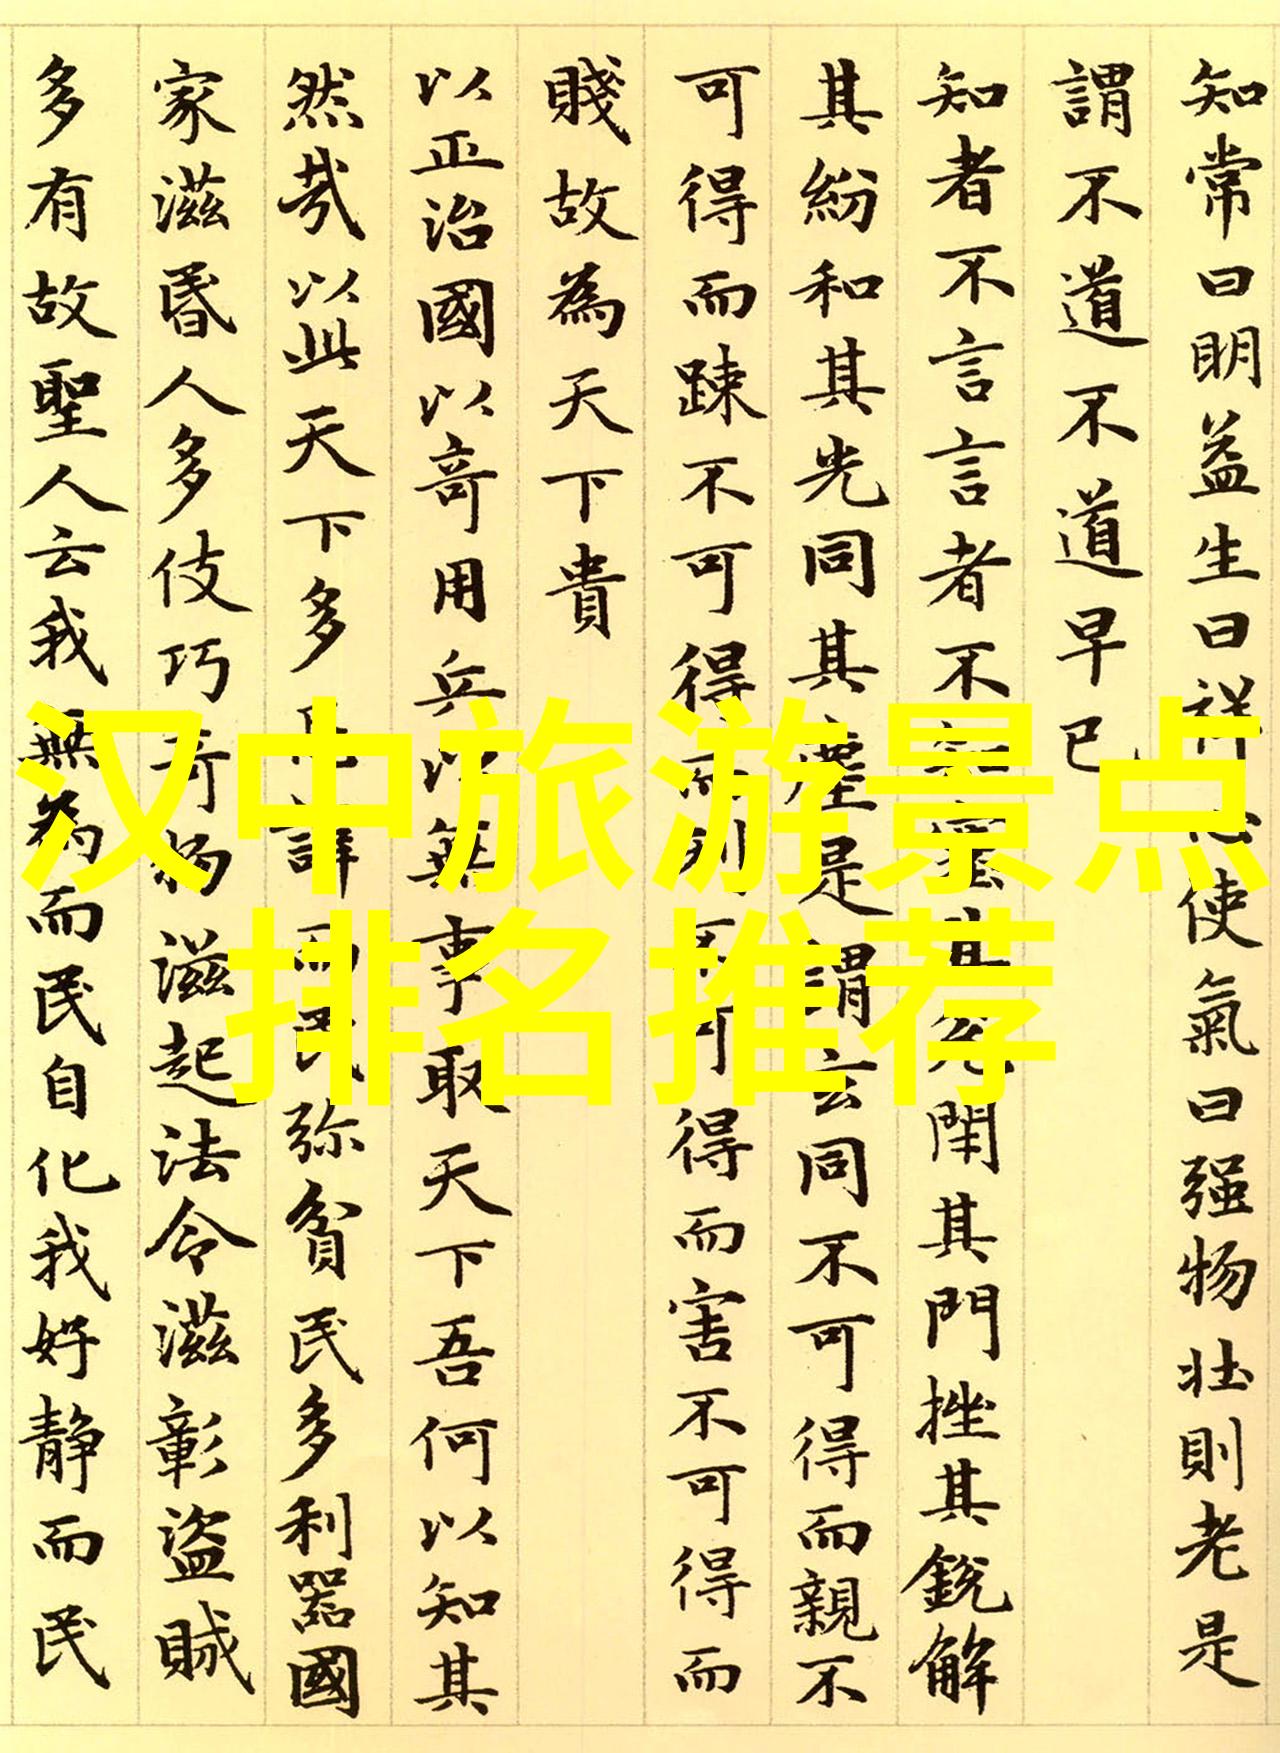 知常曰明益生曰祥心使氣曰强物壯則老是
謂不道不道早已
知者不言言者不知塞其兌閉其門挫其銳解
其紛和其光同其塵是謂玄同不可得而親不
可得而踈不可得而利不可得而害不可得而
賤故為天下貴
以正治國以奇用兵以無事取天下吾何以知其
然哉以此天下多忌諱而民弥貧民多利器國
家滋昏人多伎巧奇物滋起法令滋彰盜賊
多有故聖人云我無為而民自化我好静而民
汉中旅游景点
排名推荐